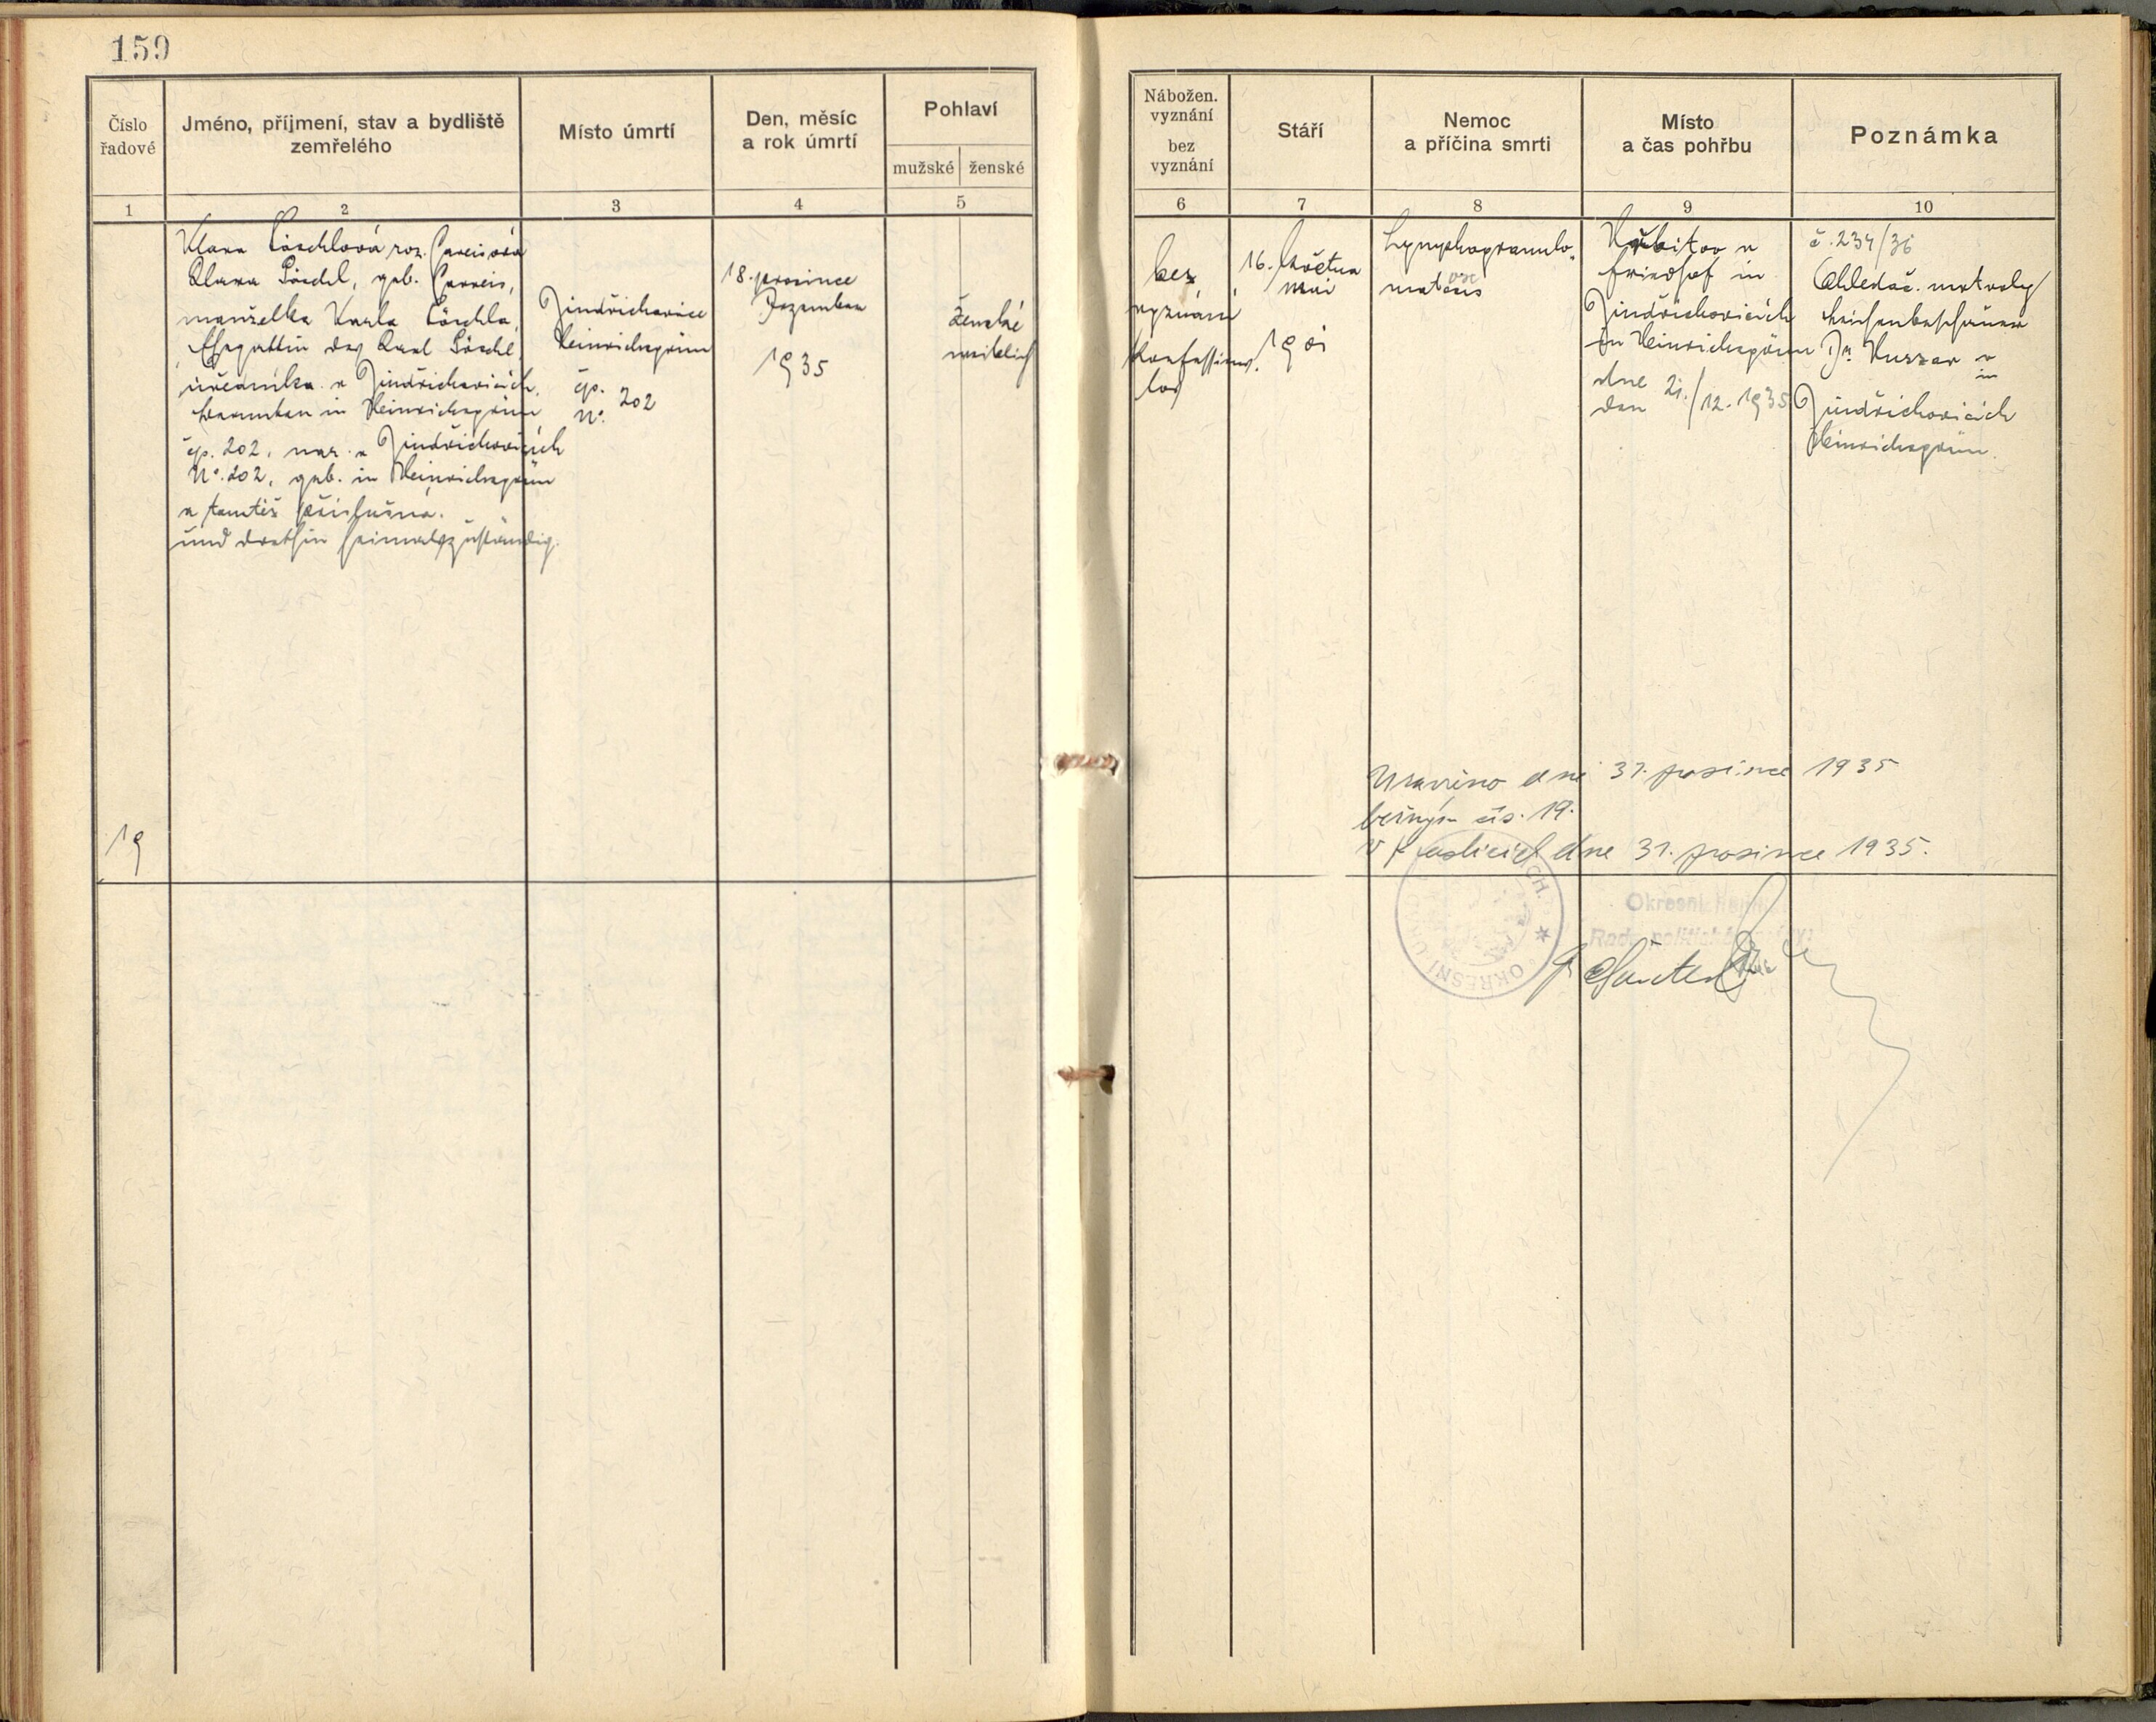 159
Číslo řadové
Jméno, příjmení, stav a bydliště zemřelého
Místo úmrtí
Den, měsíc a rok úmrtí
Pohlaví
mužské ženské
1 2 3 4 5
Klara Löschlová roz.
Clara Löschl, geb.
manželka Karla Löschla,
Ehegattin des Karl Löschl,
úředníka v Jindřichovicích,
Beamten in Heinrichsgrün
čp. 202, nar. v Jindřichovicích
No. 202, geb. in Heinrichsgrün
a tamtéž příslušná.
und dorthin heimatzuständig.
Jindřichovice
Heinrichsgrün
čp. 202
No.
18. prosince
Dezember
1935
ženské
weiblich
19
Nábožen. vyznání
bez vyznání
Stáří
Nemoc a příčina smrti
Místo a čas pohřbu
Poznámka
6 7 8 9 10
bez
vyznání
konfessions-
los
16. května
Mai
Lymphogranulo-
Hřbitov v
Friedhof in
Jindřichovicích
in Heinrichsgrün
dne 21./12. 1935
den
č. 234/36
Ohledač mrtvoly
Leichenbeschauer
Dr. v
in
Jindřichovicích
Heinrichsgrün.
Uzavřeno dne 31. prosince 1935
běžným čís. 19.
V Kraslicích dne 31. prosince 1935.
OKRESNÍ
Okresní
Rada politické